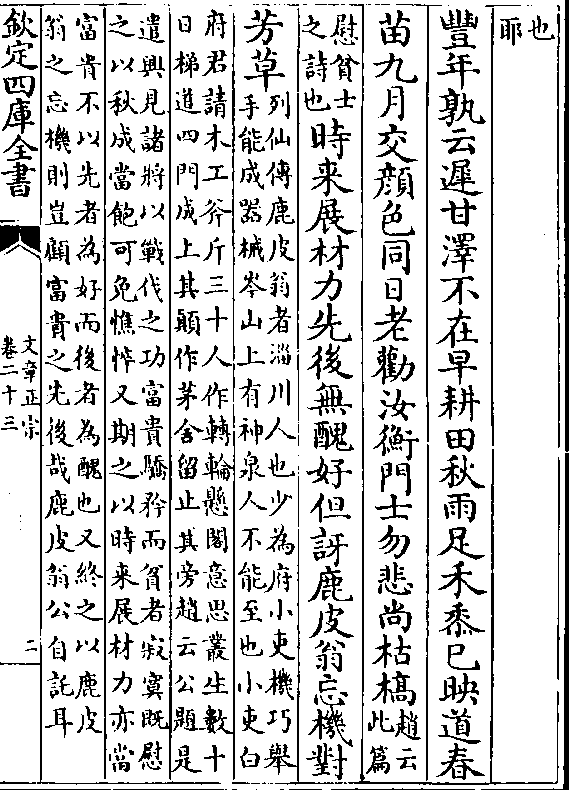 也
耶
豐年孰云遲甘澤不在早耕田秋雨足禾黍已映道春
苗九月交顔色同日老勸汝衡門士勿悲尚枯槁趙云
此篇
慰貧士
之詩也時来展材力先後無醜好但訝鹿皮翁忘機對
芳草列仙傳鹿皮翁者淄川人也少為府小吏機巧舉
手能成器械岑山上有神泉人不能至也小吏白
府君請木工斧斤三十人作轉輪懸閣意思叢生數十
日梯道四門成上其顛作茅舍留止其旁趙云公題是
遣興見諸將以戰伐之功富貴驕矜而貧者寂寞既慰
之以秋成當飽可免憔悴又期之以時来展材力亦當
富貴不以先者為好而後者為醜也又終之以鹿皮
翁之忘機則豈顧富貴之先後哉鹿皮翁公自託耳
欽定四庫全書
文章正宗
卷二十三
二